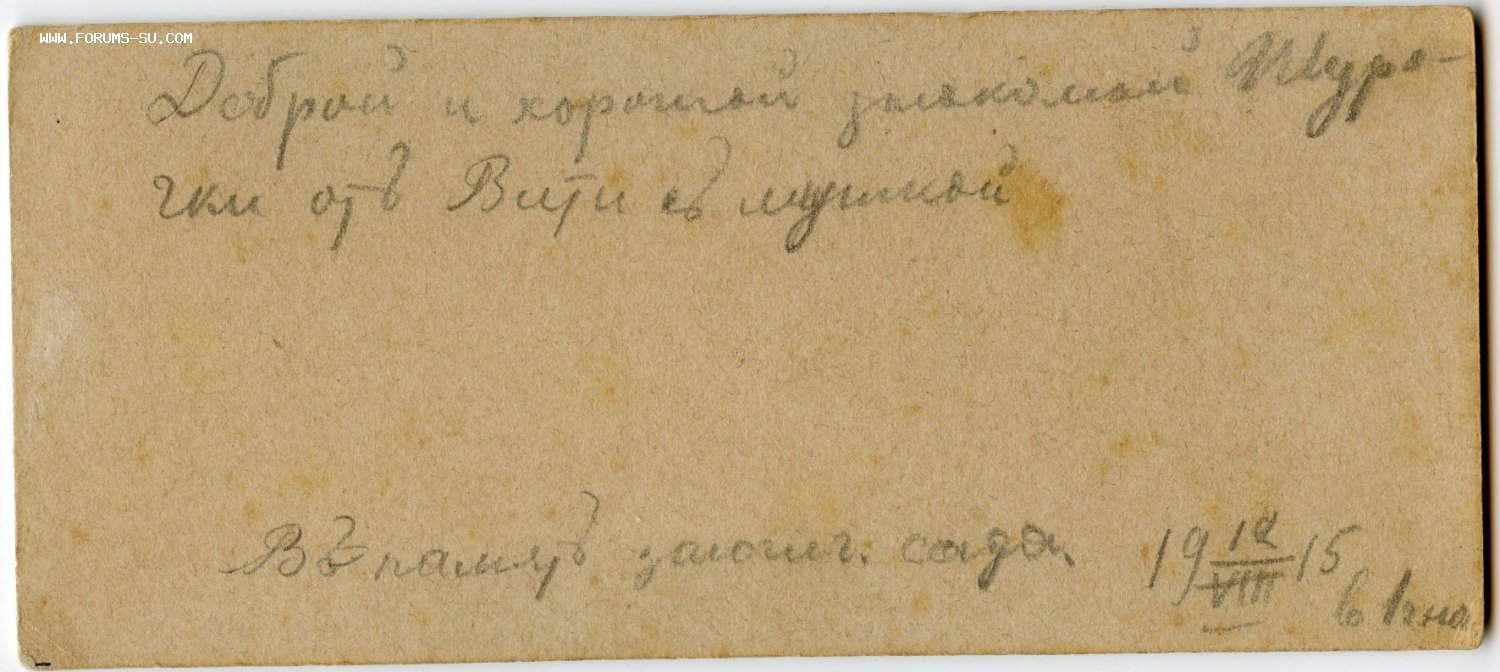 WWW.FORUMS-SU.COM
Доброй и хорошей знакомой Шуро-
чки отъ Вити съ мушкой
Въ память зоологич. сада. 19 12/VIII 15